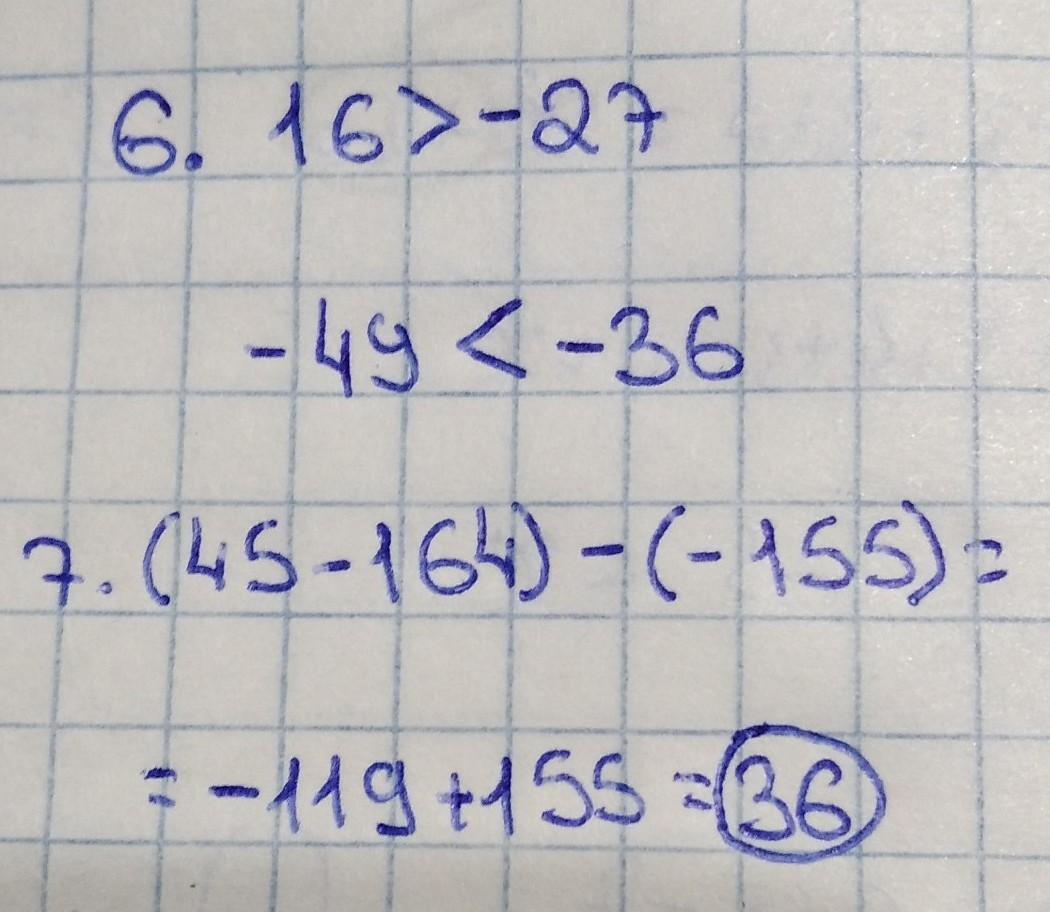 6. 16>-27
-49 < -36
7. (45-164)-(-155)=
= -119+155=36